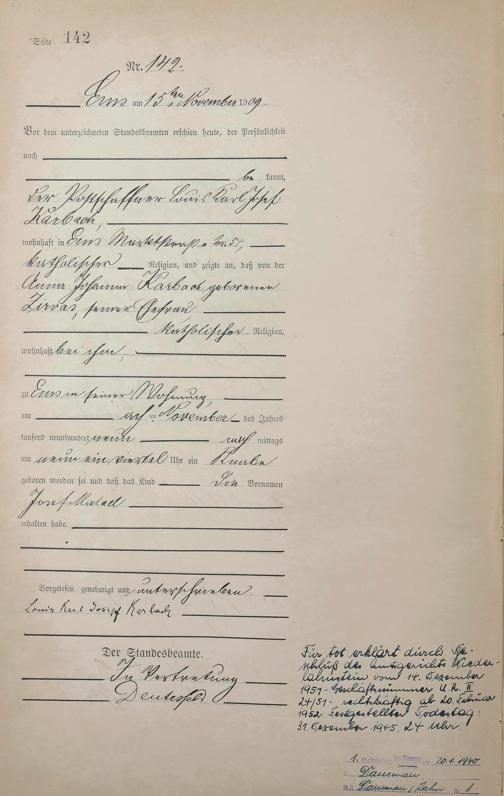 Seite 142
Nr. 142.
Ems am 15ten November 1909.
Vor dem unterzeichneten Standesbeamten erschien heute, der Persönlichkeit
nach
be kannt,
der Postschaffner Louis Karl Josef
Karbach,
wohnhaft in Ems Marktstraße No 57,
katholischer Religion, und zeigte an, daß von der
Anna Johanna Karbach geborenen
Zirvas, seiner Ehefrau,
katholischer Religion,
wohnhaft bei ihm,
zu Ems in seiner Wohnung,
am November des Jahres
tausend neunhundert neun nach mittags
um neun ein viertel Uhr ein Knabe
geboren worden sei und daß das Kind die Vornamen
Josef Michael
erhalten habe.
Vorgelesen, genehmigt und unterschrieben.
Louis Karl Josef Karbach
Der Standesbeamte.
In Vertretung
Für tot erklärt durch Be-
schluß des Amtsgerichts Nieder-
lahnstein vom 14. Dezember
1951 - Geschäftsnummer U.R. II
24/51 - rechtskräftig ab 20. Februar
1952. Festgestellter Todestag:
31. Dezember 1945, 24 Uhr.
1. 20.1.1940
Dausenau
Dausenau/Lahn Nr. 1